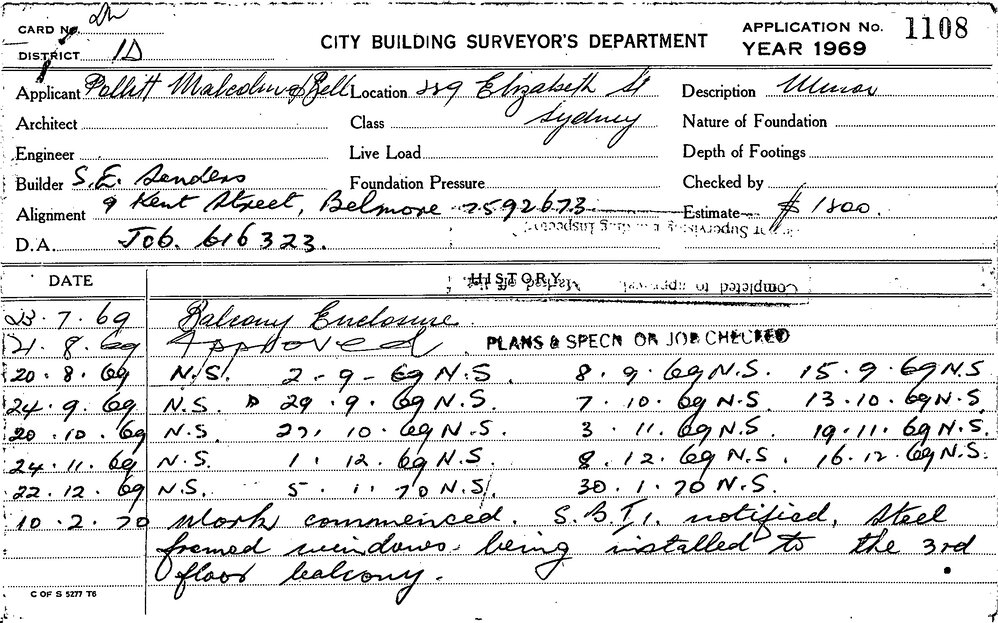 CARD No.
DISTRICT 1D
CITY BUILDING SURVEYOR'S DEPARTMENT
APPLICATION No. 1108
YEAR 1969
Applicant Pollitt Malcolm & Bell Location 229 Elizabeth St Description Minor
Architect Class Sydney Nature of Foundation
Engineer Live Load Depth of Footings
Builder S.E. Sanders Foundation Pressure Checked by
Alignment 9 Kent Street, Belmore 7592673 Estimate $1800.
D.A. Job. 616323.
DATE HISTORY
23.7.69 Balcony Enclosure.
21.8.69 Approved PLANS & SPECN ON JOB CHECKED
20.8.69 N.S. 2-9-69 N.S. 8.9.69 N.S. 15.9.69 N.S
24.9.69 N.S. 29.9.69 N.S. 7.10.69 N.S. 13.10.69 N.S.
20.10.69 N.S. 27.10.69 N.S. 3.11.69 N.S. 19.11.69 N.S.
24.11.69 N.S. 1.12.69 N.S. 8.12.69 N.S. 16.12.69 N.S.
22.12.69 N.S. 5.1.70 N.S. 30.1.70 N.S.
10.2.70 Work commenced. S.B.I. notified, steel
framed windows being installed to the 3rd
floor balcony.
C OF S 5277 T6